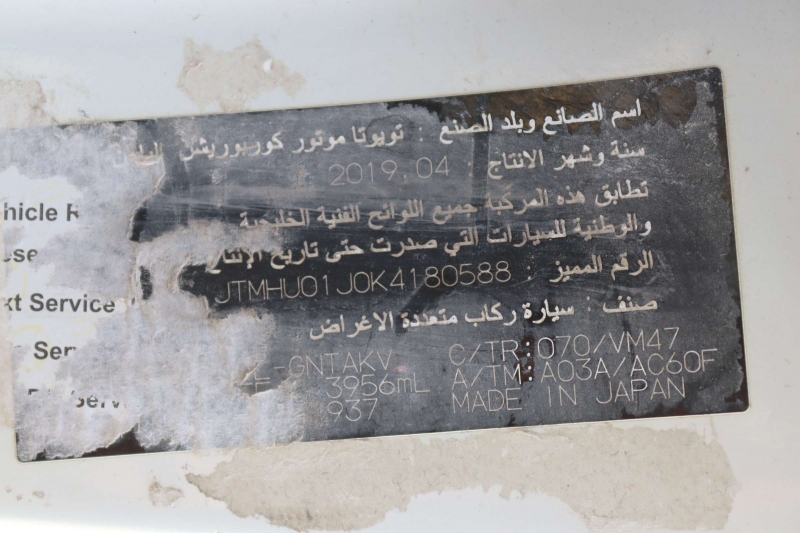 اسم الصانع وبلد الصنع : تويوتا موتور كوربوريشن
سنة وشهر الانتاج : 2019.04
تطابق هذه المركبة جميع اللوائح الفنية الخليجية
والوطنية للسيارات التي صدرت حتى تاريخ الإنتاج
الرقم المميز : JTMHU01J0K4180588
صنف : سيارة ركاب متعددة الاغراض
-GNTAKV C/TR:070/VM47
3956mL A/TM:A03A/AC60F
937 MADE IN JAPAN
hicle R
xt Service
Ser